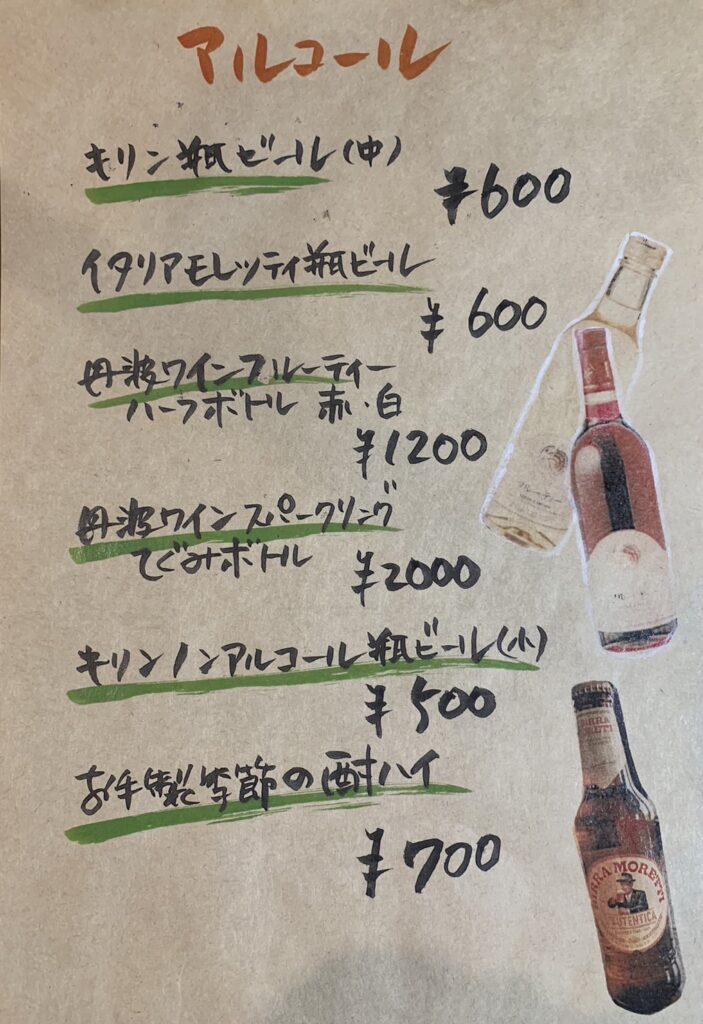 アルコール
キリン瓶ビール(中)
¥600
イタリアモレッティ瓶ビール
¥600
丹波ワインフルーティー
ハーフボトル 赤・白
¥1200
丹波ワインスパークリング
てぐみボトル
¥2000
キリンノンアルコール瓶ビール(小)
¥500
お手製季節の酎ハイ
¥700
BIRRA
MORETTI
BIRRA MORETTI
L'AUTENTICA